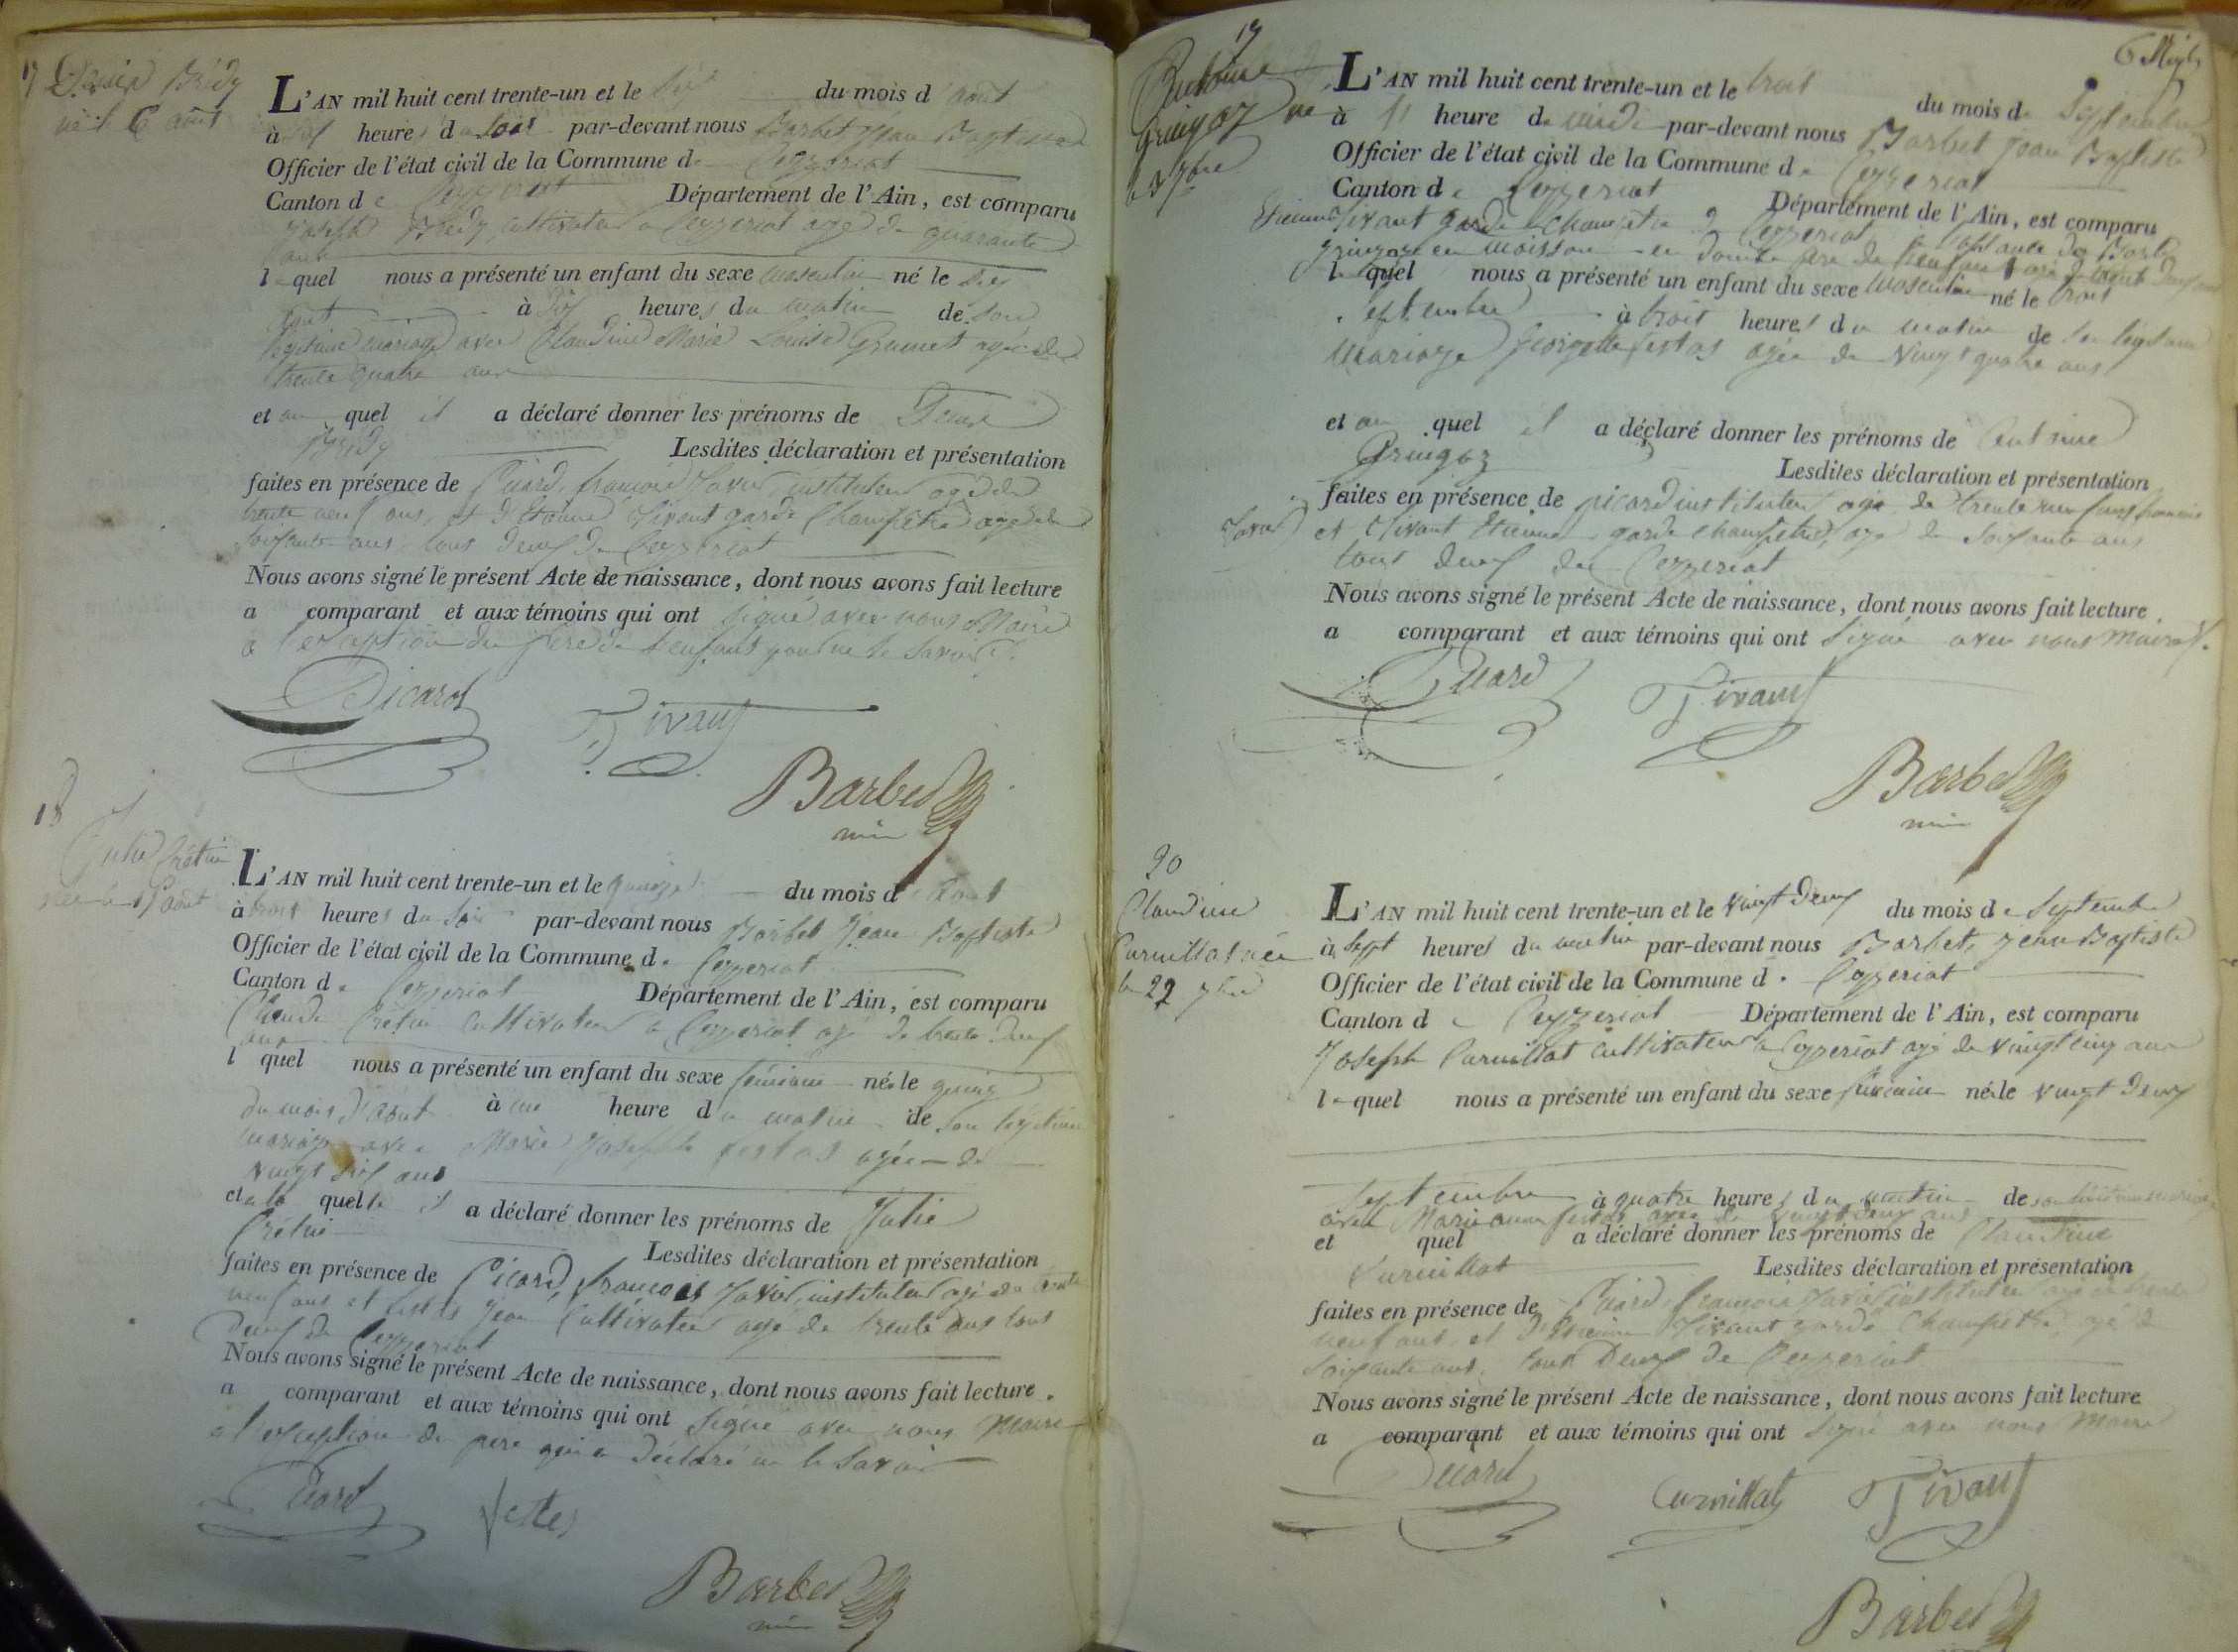 17
Bridy
né le 6 aout
L'AN mil huit cent trente-un et le six du mois d'aout
à six heures du soir par-devant nous Barbet Jean Baptiste
Officier de l'état civil de la Commune de Ceyzeriat
Canton de Ceyzeriat Département de l'Ain, est comparu
Joseph Bridy cultivateur a Ceyzeriat agé de quarante
ans
lequel nous a présenté un enfant du sexe masculin né le six
aout à dix heures du matin de son
legitime mariage avec Claudine Marie Louise Grumet agée de
trente quatre ans
et au quel il a déclaré donner les prénoms de
Bridy Lesdites déclaration et présentation
faites en présence de Picard françois Xavier instituteur agé de
trente neuf ans, et d'Etienne Tivant garde champêtre agé de
soixante ans tous deux de Ceyzeriat
Nous avons signé le présent Acte de naissance, dont nous avons fait lecture
a comparant et aux témoins qui ont signé avec nous Maire
a l'exception du pere de l'enfant pour ne le savoir.
Picard Tivant
Barbet
18
Julie Crétin
née le 15 aout
L'AN mil huit cent trente-un et le quinze du mois d'aout
à trois heures du soir par-devant nous Barbet Jean Baptiste
Officier de l'état civil de la Commune de Ceyzeriat
Canton de Ceyzeriat Département de l'Ain, est comparu
Claude Crétin cultivateur a Ceyzeriat agé de trente deux
ans
l quel nous a présenté un enfant du sexe féminin née le quinze
du mois d'aout à une heure du matin de son legitime
mariage avec Marie Josephte festas agée de
vingt six ans
et a la quelle il a déclaré donner les prénoms de Julie
Crétin Lesdites déclaration et présentation
faites en présence de Picard, françois Xavier, instituteur agé de trente
neuf ans et festas Jean Cultivateur agé de trente ans tous
deux de Ceyzeriat
Nous avons signé le présent Acte de naissance, dont nous avons fait lecture.
a comparant et aux témoins qui ont signé avec nous Maire
a l'exception du pere qui a déclaré ne le savoir
Picard
Barbet
19
Gringoz né
le 3 7bre
L'AN mil huit cent trente-un et le trois du mois de Septembre
à heure de midi par-devant nous Barbet Jean Baptiste
Officier de l'état civil de la Commune de Ceyzeriat
Canton de Ceyzeriat Département de l'Ain, est comparu
Etienne Tivant garde champetre de Ceyzeriat
lequel nous a présenté un enfant du sexe masculin né le trois
septembre à trois heures du matin de son legitime
mariage Georgette festas agée de vingt quatre ans
et au quel il a déclaré donner les prénoms de
Gringoz Lesdites déclaration et présentation
faites en présence de picard instituteur agé de trente neuf ans françois
Xavier et Tivant Etienne garde champêtre, agé de soixante ans
tous deux de Ceyzeriat
Nous avons signé le présent Acte de naissance, dont nous avons fait lecture.
a comparant et aux témoins qui ont signé avec nous Maire.
Picard Tivant
Barbet
20
Claudine
Curnillat née
le 22 7bre
L'AN mil huit cent trente-un et le vingt deux du mois de Septembre
à sept heures du matin par-devant nous Barbet, Jean Baptiste
Officier de l'état civil de la Commune de Ceyzeriat
Canton de Ceyzeriat Département de l'Ain, est comparu
Joseph Curnillat cultivateur a Ceyzeriat agé de vingt cinq ans
lequel nous a présenté un enfant du sexe féminin née le vingt deux
septembre à quatre heures du matin de son légitime mariage
avec Marie anne festas agée de vingt deux ans
et quel a déclaré donner les prénoms de Claudine
Curnillat Lesdites déclaration et présentation
faites en présence de Picard, françois Xavier instituteur agé de trente
neuf ans, et d'Etienne Tivant garde Champêtre agé de
soixante ans, tous deux de Ceyzeriat
Nous avons signé le présent Acte de naissance, dont nous avons fait lecture
a comparant et aux témoins qui ont signé avec nous Maire
Picard Curnillat Tivant
Barbet